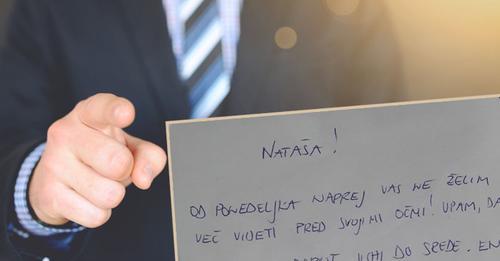 NATAŠA!
OD PONEDELJKA NAPREJ VAS NE ŽELIM
VEČ VIDETI PRED SVOJIMI OČMI! UPAM, DA
DO SREDE. EN